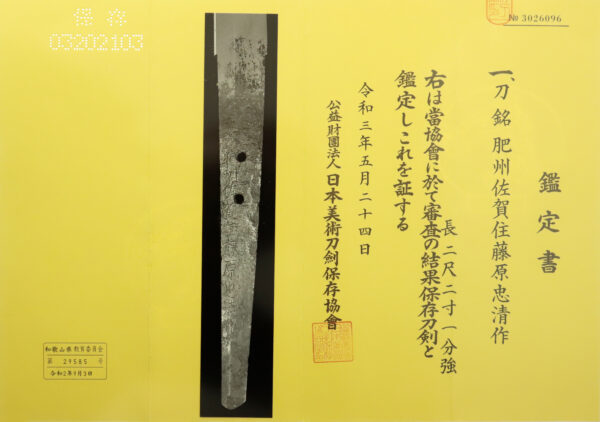 № 3026096
鑑定書
一、刀 銘 肥州佐賀住藤原忠清作
長 二尺二寸一分強
右は當協會に於て審査の結果保存刀剣と
鑑定しこれを証する
令和三年五月二十四日
公益財團法人 日本美術刀劍保存協會
保存
03202103
和歌山県教育委員会
第 29585 号
令和2年9月3日